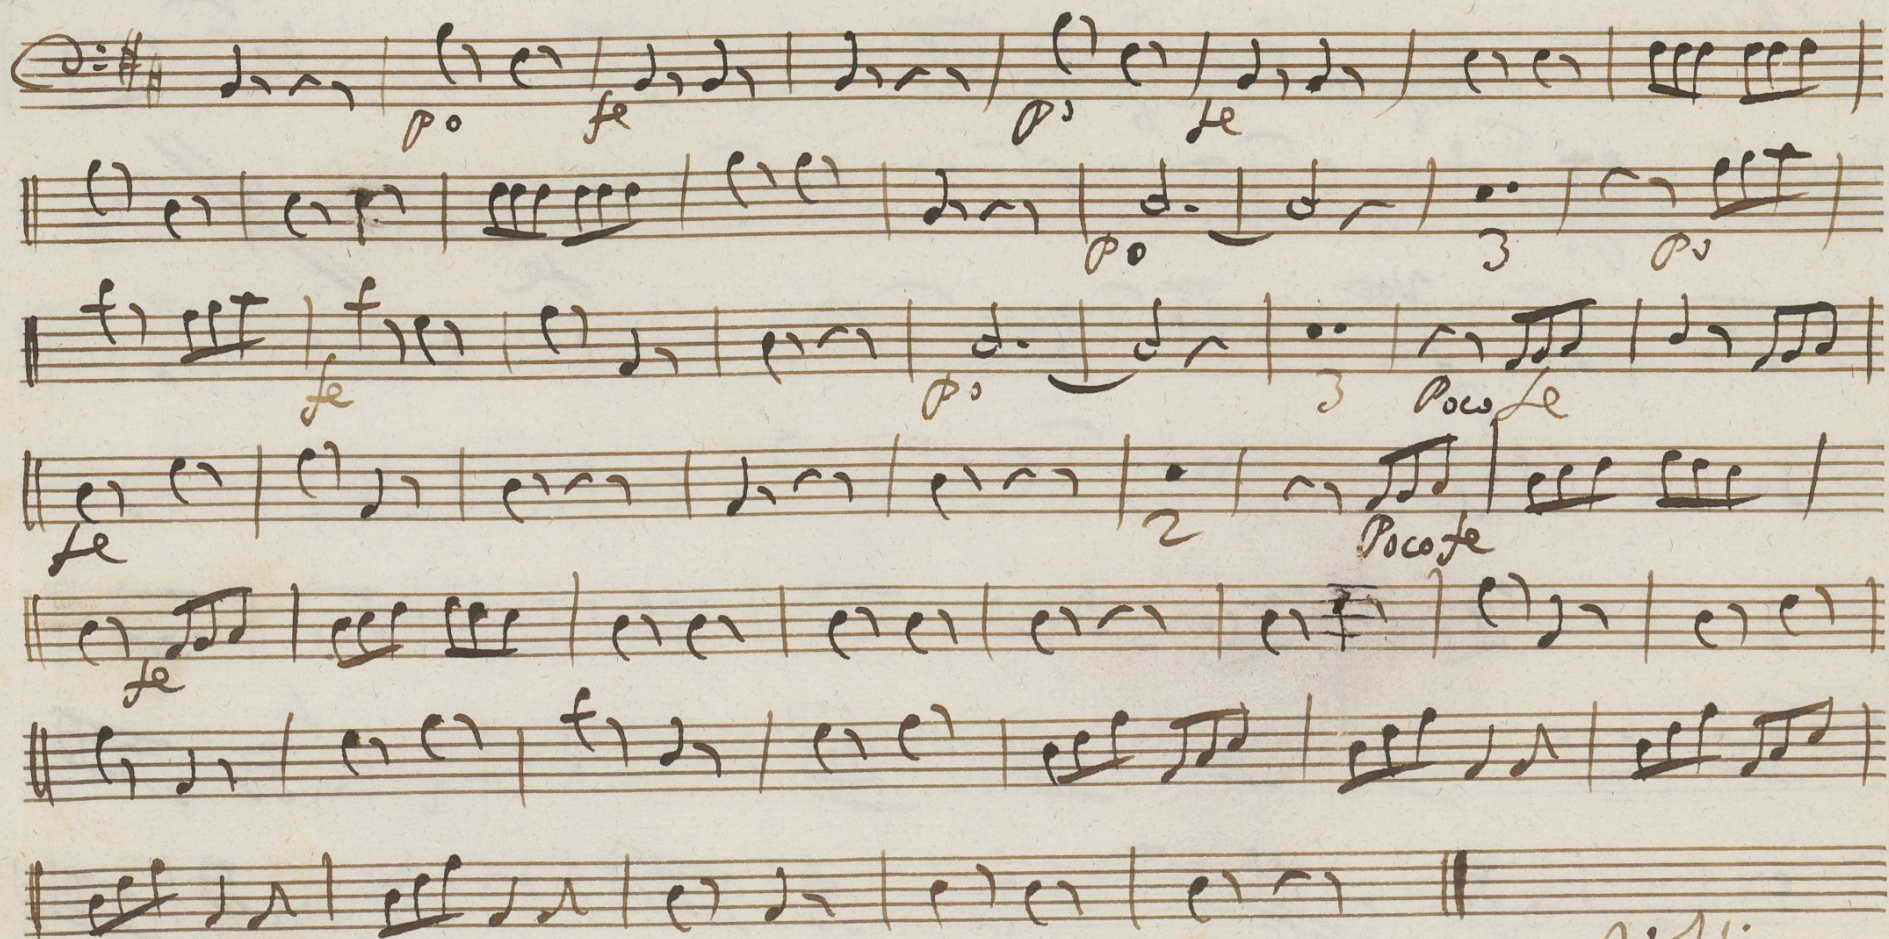 po fe po fe
po 3 po
fe po 3 Poco fe
fe 2 Poco fe
fe